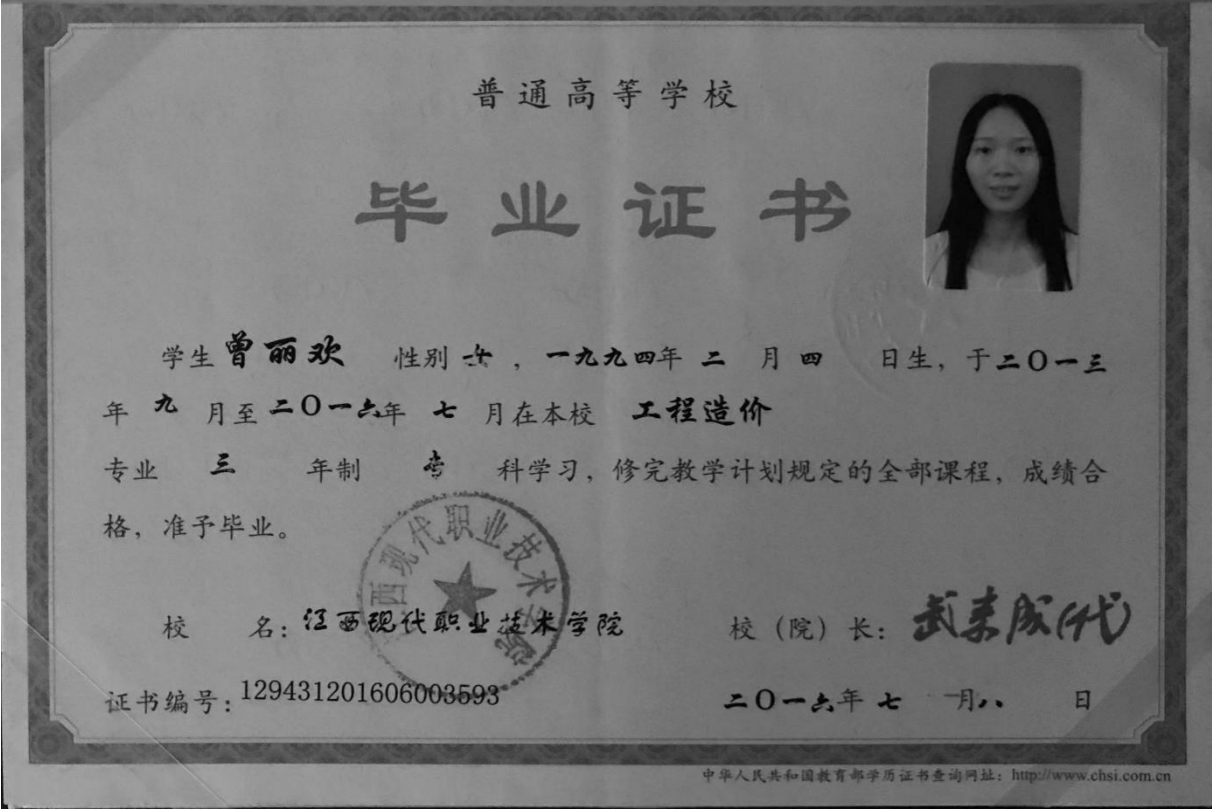 普通高等学校
毕业证书
学生 曾丽欢 性别 女，一九九四年 二 月 四 日生，于二〇一三
年 九 月至二〇一六年 七 月在本校 工程造价
专业 三 年制 专 科学习，修完教学计划规定的全部课程，成绩合
格，准予毕业。
江西现代职业技术学院
校 名：江西现代职业技术学院 校（院）长：武来成(代)
证书编号：129431201606003593 二〇一六年 七 月八 日
中华人民共和国教育部学历证书查询网址：http://www.chsi.com.cn